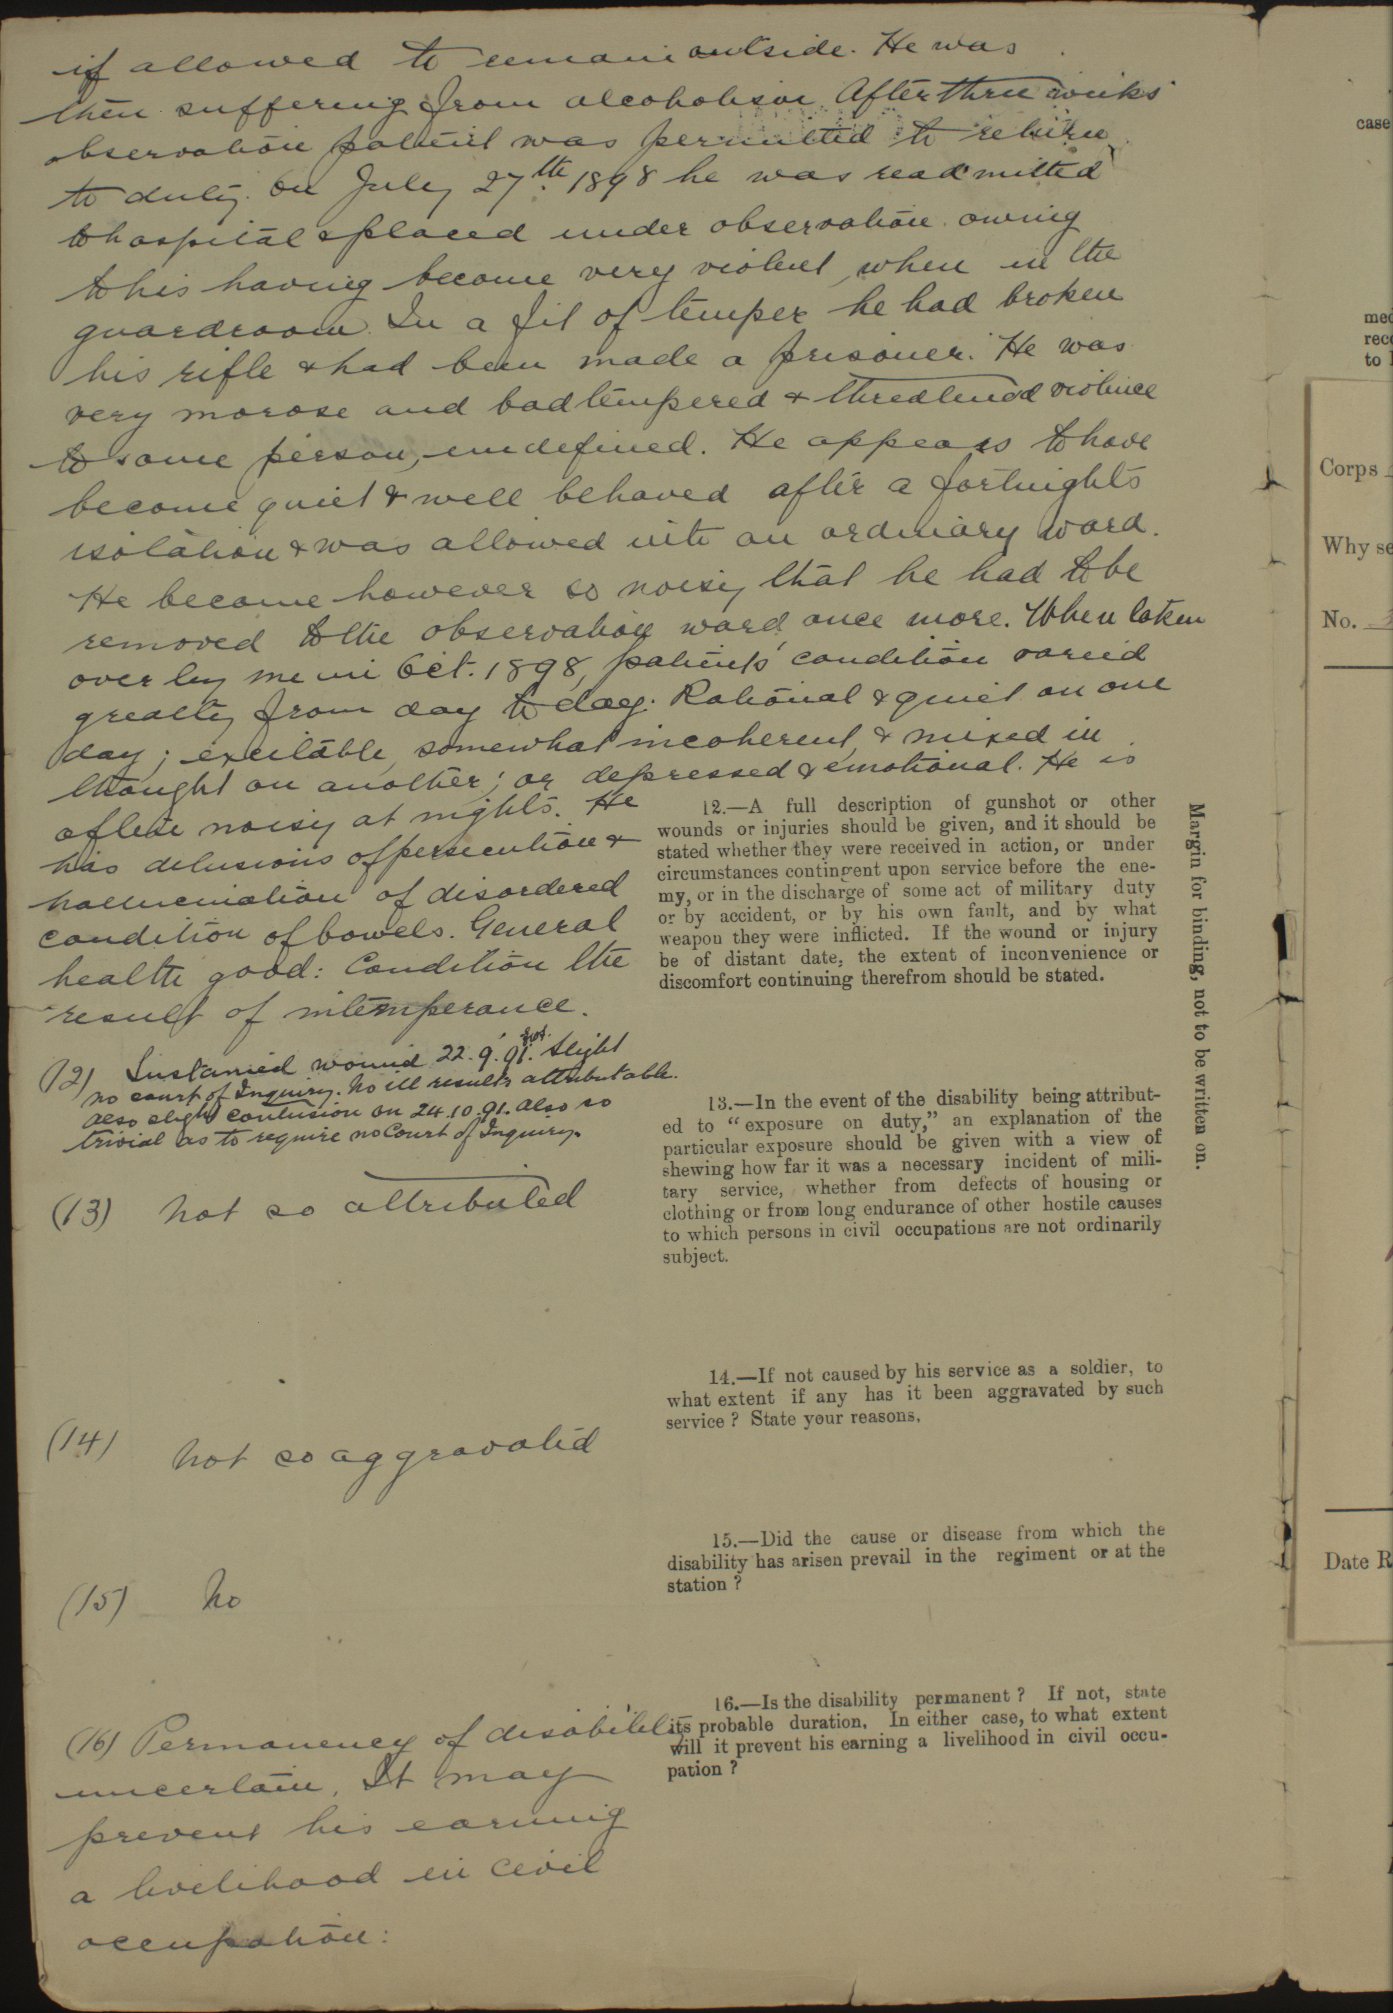 if allowed to remain outside. He was
then suffering from alcoholism. After three weeks
observation patient was permitted to return
to duty. On July 27th 1898 he was readmitted
to hospital & placed under observation owing
to his having become very violent, when in the
guardroom. In a fit of temper he had broken
his rifle & had been made a prisoner. He was
very morose and bad tempered & threatened violence
to some person, undefined. He appears to have
become quiet & well behaved after a fortnights
isolation & was allowed into an ordinary ward.
He became however so noisy that he had to be
removed to the observation ward once more. When taken
over by me in Oct. 1898, patients condition varied
greatly from day to day. Rational & quiet on one
day; excitable, somewhat incoherent, & mixed in
thought on another; or depressed & emotional. He is
often noisy at nights. He
has delusions of persecution &
hallucination of disordered
condition of bowels. General
health good: Condition the
result of intemperance.
(12) Sustained wound 22.9.91. Slight
no court of Inquiry. No ill results attributable.
Also slight contusion on 24.10.91. Also so
trivial as to require no Court of Inquiry.
(13) Not so attributed
(14) Not so aggravated
(15) No
(16) Permanency of disability
uncertain. It may
prevent his earning
a livelihood in civil
occupation:
12.—A full description of gunshot or other
wounds or injuries should be given, and it should be
stated whether they were received in action, or under
circumstances contingent upon service before the ene-
my, or in the discharge of some act of military duty
or by accident, or by his own fault, and by what
weapon they were inflicted. If the wound or injury
be of distant date, the extent of inconvenience or
discomfort continuing therefrom should be stated.
13.—In the event of the disability being attribut-
ed to "exposure on duty," an explanation of the
particular exposure should be given with a view of
shewing how far it was a necessary incident of mili-
tary service, whether from defects of housing or
clothing or from long endurance of other hostile causes
to which persons in civil occupations are not ordinarily
subject.
14.—If not caused by his service as a soldier, to
what extent if any has it been aggravated by such
service ? State your reasons.
15.—Did the cause or disease from which the
disability has arisen prevail in the regiment or at the
station ?
16.—Is the disability permanent ? If not, state
its probable duration. In either case, to what extent
will it prevent his earning a livelihood in civil occu-
pation ?
Margin for binding, not to be written on.
case
med
reco
to
Corps
Why se
No.
Date R